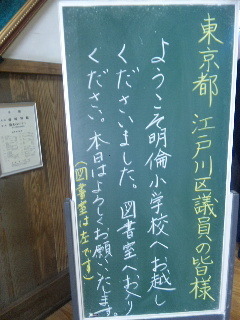 東京都 江戸川区議員の皆様
ようこそ明倫小学校へお越し
くださいました。図書室へお入り
ください。本日はよろしくお願いいたします。
（図書室は左です）